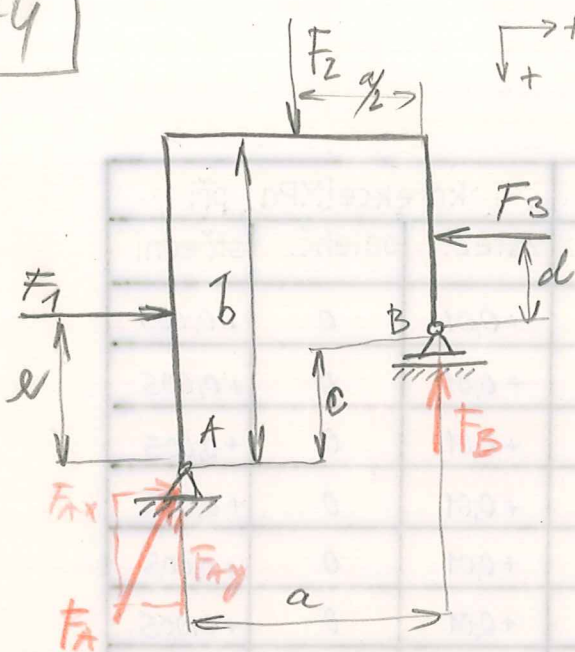 4
F2
a/2
+
+
F3
F1
b
d
B
e
c
A
FB
FAx
FAy
a
FA